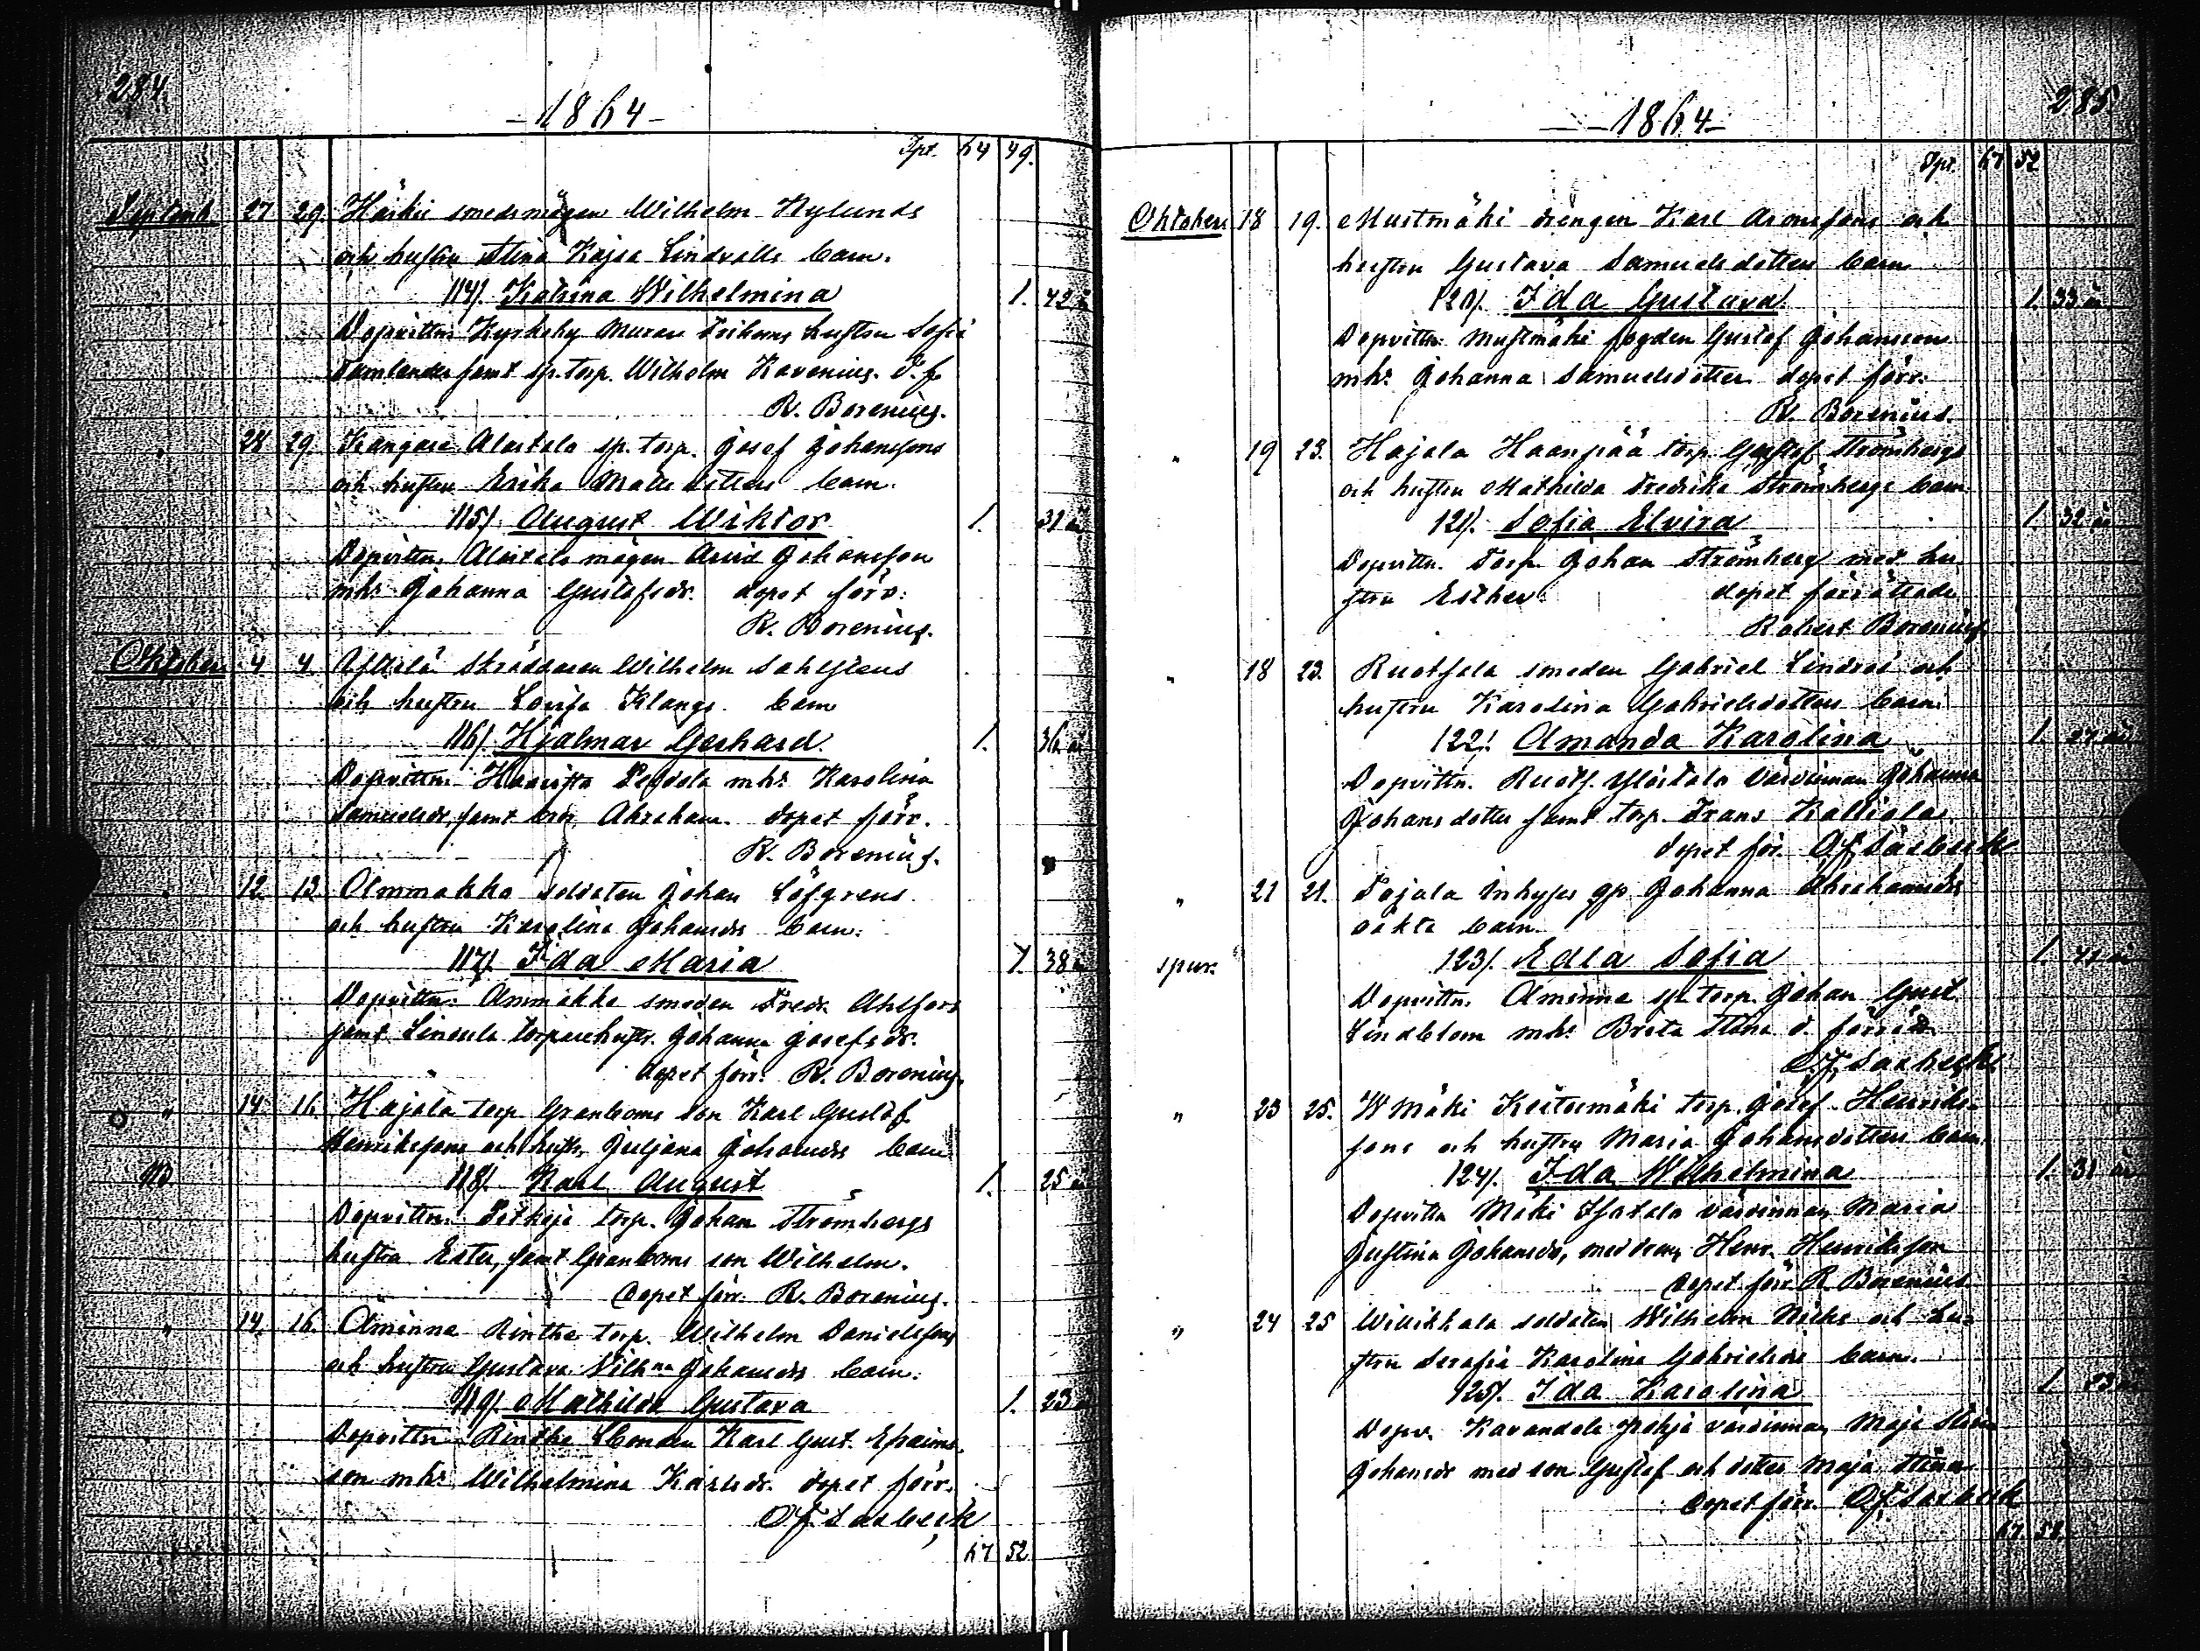 284.
-1864-
Spt. 64 49.
Septemb. 27 29. Härkii smedsmågen Wilhelm Nylunds
och hustru Stina Kajsa Lindvalls barn.
114/. Katrina Wilhelmina 1. 42 å
Dopvittn. Kyrkoby Muraren hustru Sofia
samt sp. torp. Wilhelm Kavenius. d. f.
R. Borenius.
" 28 29. Kangare Alastalo sp. torp. Josef Johanssons
och hustru Erika Matts dotters barn.
115/. August Wiktor 1. 31 å
Dopvittn. Alastalo mågen Arvid Johansson
mhr Johanna Gustafsdr. dopet förr.
R. Borenius.
Oktober 4 4 skräddaren Wilhelm Sahlstens
och hustru Lovisa Klangs barn
116/. Hjalmar Gerhard. 1. 36 år
Dopvittn. Haarista Seppola mhr Karolina
Samuelsdr, samt Abraham. dopet förr.
R. Borenius.
" 12 13 Ölmmakka soldaten Johan Löfgrens
och hustru Karolina Johansdrs barn.
117/. Ida Maria 1. 38 å
Dopvittn. Ammakka smeden Fredr. Ahlfors
samt torparehustr. Johanna Josefsdr.
dopet förr. R. Borenius.
" 14 16. Hajala torp Granboms son Karl Gustaf
Henrikssons och hustr. Juljana Johansdrs barn
118/. Karl August 1. 25 å
Dopvittn. torp. Johan Strömbergs
hustru Ester, samt Granboms son Wilhelm.
dopet förr. R. Borenius.
" 14. 16. Åminne Rintha torp. Wilhelm Danielssons
och hustru Gustava Vilhna Johansdrs barn.
119/. Mathilda Gustava 1. 23 å
Dopvittn. Rintha bonden Karl Gust. Efraims-
son mhr Wilhelmina Karlsdr. dopet förr.
67 52
285
-1864-
Spt. 67 52
Oktober 18 19. Mustmäki drängen Karl Aronssons och
hustru Gustava Samuelsdotters barn
120/. Ida Gustava. 1. 33 år
Dopvittn. Mustmäki fogden Gustaf Johansson
mhr Johanna Samuelsdotter. dopet förr.
R. Borenius.
" 19 23. Hajala Haanpää torp. Gustaf Strömbergs
och hustru Mathilda Fredrika Strömbergs barn
121/. Sofia Elvira 1. 32 år
Dopvittn. Torp. Johan Strömberg med hu-
stru Esther. dopet förrättade
Robert Borenius.
" 18 23. Ruotsala smeden Gabriel Lindroos och
hustru Karolina Gabrielsdotters barn
122/. Amanda Karolina 1. 27 år
Dopvittn. Ruots. Ylöstalo värdinnan Johanna
Johansdotter samt torp. Frans Kalliola
dopet för.
" 21 21. Pajala Inhyses qp. Johanna Abrahamsdrs
oäkta barn.
spur. 123/. Edla Sofia 1. 41 år
Dopvittn. Åminne sp. torp. Johan Gust.
Lindblom mhr Brita Stina d. förr.
" 23 25. W Mäki Keitumäki torp. Josef Henriks-
sons och hustru Maria Johansdotters barn
124/. Ida Wilhelmina 1. 31 år
Dopvittn Mäki Isotalo värdinnan Maria
Justina Johansdr, med dräng Henr. Henriksson
dopet förr. R. Borenius.
" 24 25 soldaten Wilhelm och hu-
stru Serafia Karolina Gabrielsdrs barn.
125/. Ida Karolina 1. 23
Dopv. värdinnan Maja Stina
Johansdr med son Gustaf och dotter Maja Stina
dopet förr.
67 58